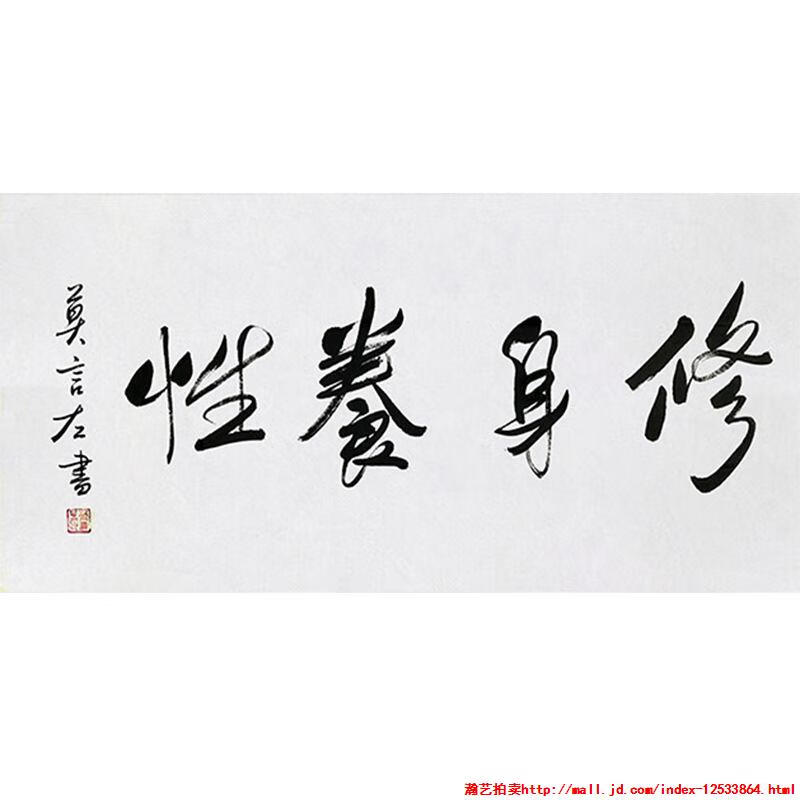 修身養性
莫言左書
瀚艺拍卖http://mall.jd.com/index-12533864.html